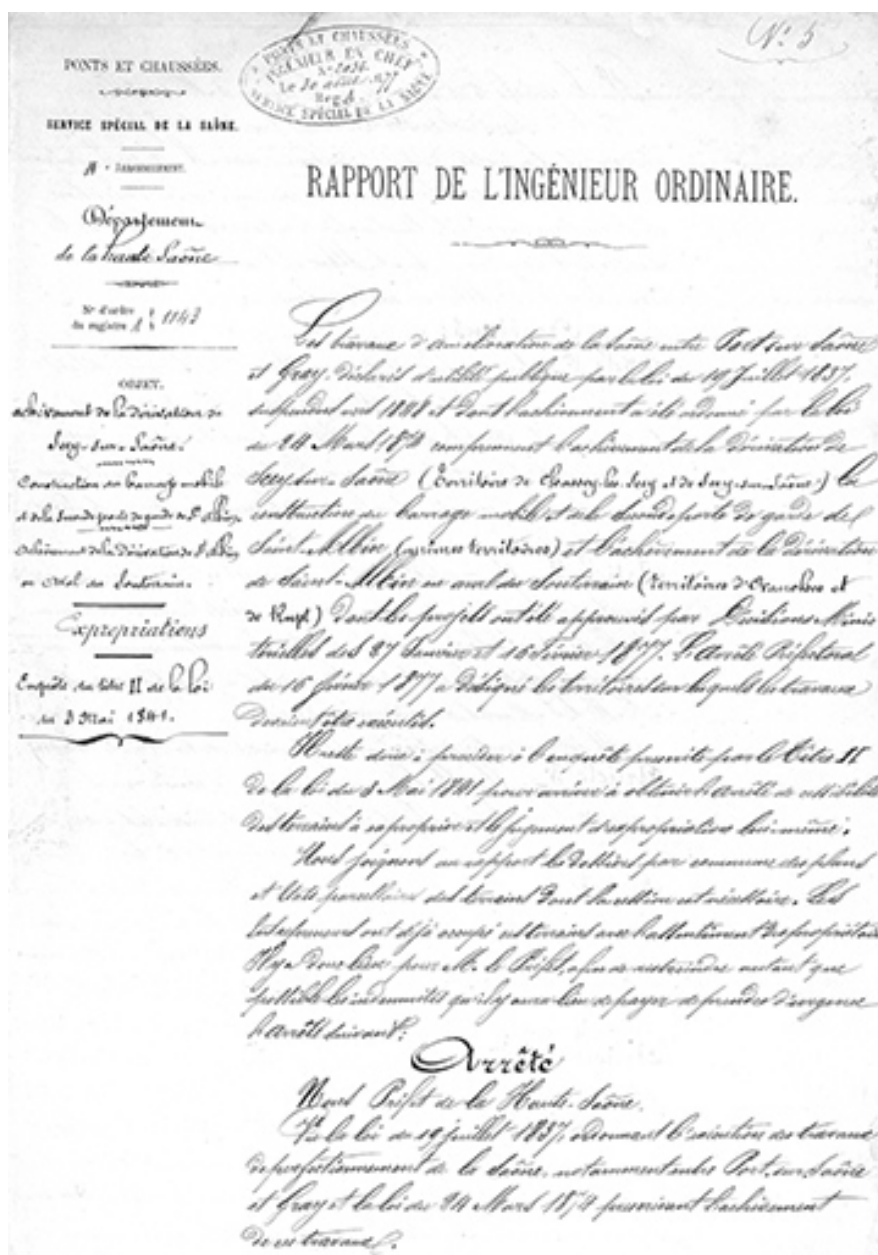 N° 5
PONTS ET CHAUSSÉES
INGÉNIEUR EN CHEF
SERVICE SPÉCIAL DE LA SAÔNE
PONTS ET CHAUSSÉES.
SERVICE SPÉCIAL DE LA SAÔNE.
ARRONDISSEMENT.
Département
de la haute Saône
N° d'ordre
du registre A 1143
OBJET.
achèvement de la dérivation de
Scey-sur-Saône.
Construction du barrage mobile
et de la porte de garde de St Albin
achèvement de la dérivation de St Albin
en aval du Souterrain.
Expropriations
Enquête du titre II de la loi
du 3 Mai 1841.
RAPPORT DE L'INGÉNIEUR ORDINAIRE.
Les travaux d'amélioration de la Saône entre Port sur Saône
et Gray, déclarés d'utilité publique par la loi du 19 Juillet 1837,
suspendus et dont l'achèvement a été ordonné par la loi
du 24 Mars 1874 comprennent l'achèvement de la dérivation de
Scey-sur-Saône (Territoire de Chassey les Scey et de Scey-sur-Saône) la
construction du barrage mobile et de la porte de garde de
Saint-Albin (mêmes territoires) et l'achèvement de la dérivation
de Saint-Albin en aval du Souterrain (territoires d'Ovanches et
de Rupt) dont les projets ont été approuvés par Décisions Minis
térielles des 27 Janvier et 16 Février 1877. L'arrêté Préfectoral
du 16 février 1877 a désigné les territoires sur lesquels les travaux
devaient être exécutés.
Il reste donc à procéder à l'enquête prescrite par le titre II
de la loi du 3 Mai 1841 pour arriver à obtenir l'arrêté de cessibilité
des terrains à exproprier et le jugement d'expropriation lui-même.
Nous joignons au rapport les dossiers par commune des plans
et états parcellaires des terrains dont la cession est nécessaire. Les
entrepreneurs ont déjà occupé ces terrains avec l'assentiment des propriétaires
Il y a donc lieu pour M. le Préfet, afin de restreindre autant que
possible les indemnités qu'il y aura lieu de payer de prendre d'urgence
l'arrêté suivant:
Arrêté
Nous Préfet de la Haute-Saône.
Vu la loi du 19 juillet 1837, ordonnant l'exécution des travaux
de perfectionnement de la Saône, notamment entre Port-sur-Saône
et Gray et la loi du 24 Mars 1874 prescrivant l'achèvement
de ces travaux.